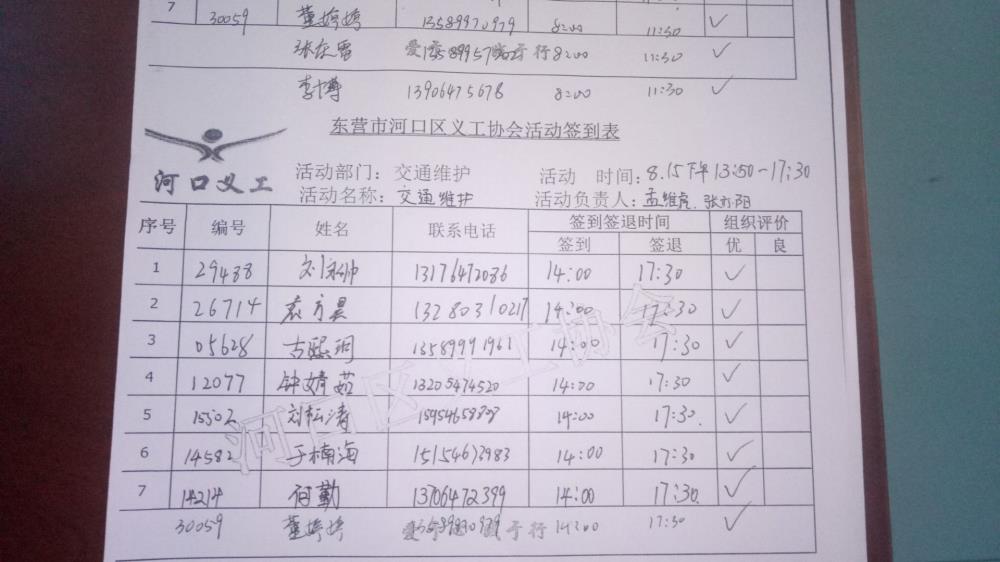 7 30059 董婷婷 13589970979 8:00 11:30 ✓
8:00 11:30 ✓
李博 13906475678 8:00 11:30 ✓
东营市河口区义工协会活动签到表
河口义工
活动部门：交通维护 活动 时间：8.15下午13:50-17:30
活动名称：交通维护 活动负责人：孟维虎、
序号 编号 姓名 联系电话 签到签退时间 组织评价
签到 签退 优 良
1 29488 13176472086 14:00 17:30 ✓
2 26714 袁方昊 13280310217 14:00 17:30 ✓
3 05628 古熙珂 13589991961 14:00 17:30 ✓
4 12077 钟婧茹 13205474520 14:00 17:30 ✓
5 15302 刘松涛 14:00 17:30 ✓
6 14582 于楠海 15154672983 14:00 17:30 ✓
7 14214 何勤 13706472399 14:00 17:30 ✓
30059 董婷婷 14:00 17:30 ✓
河口区义工协会